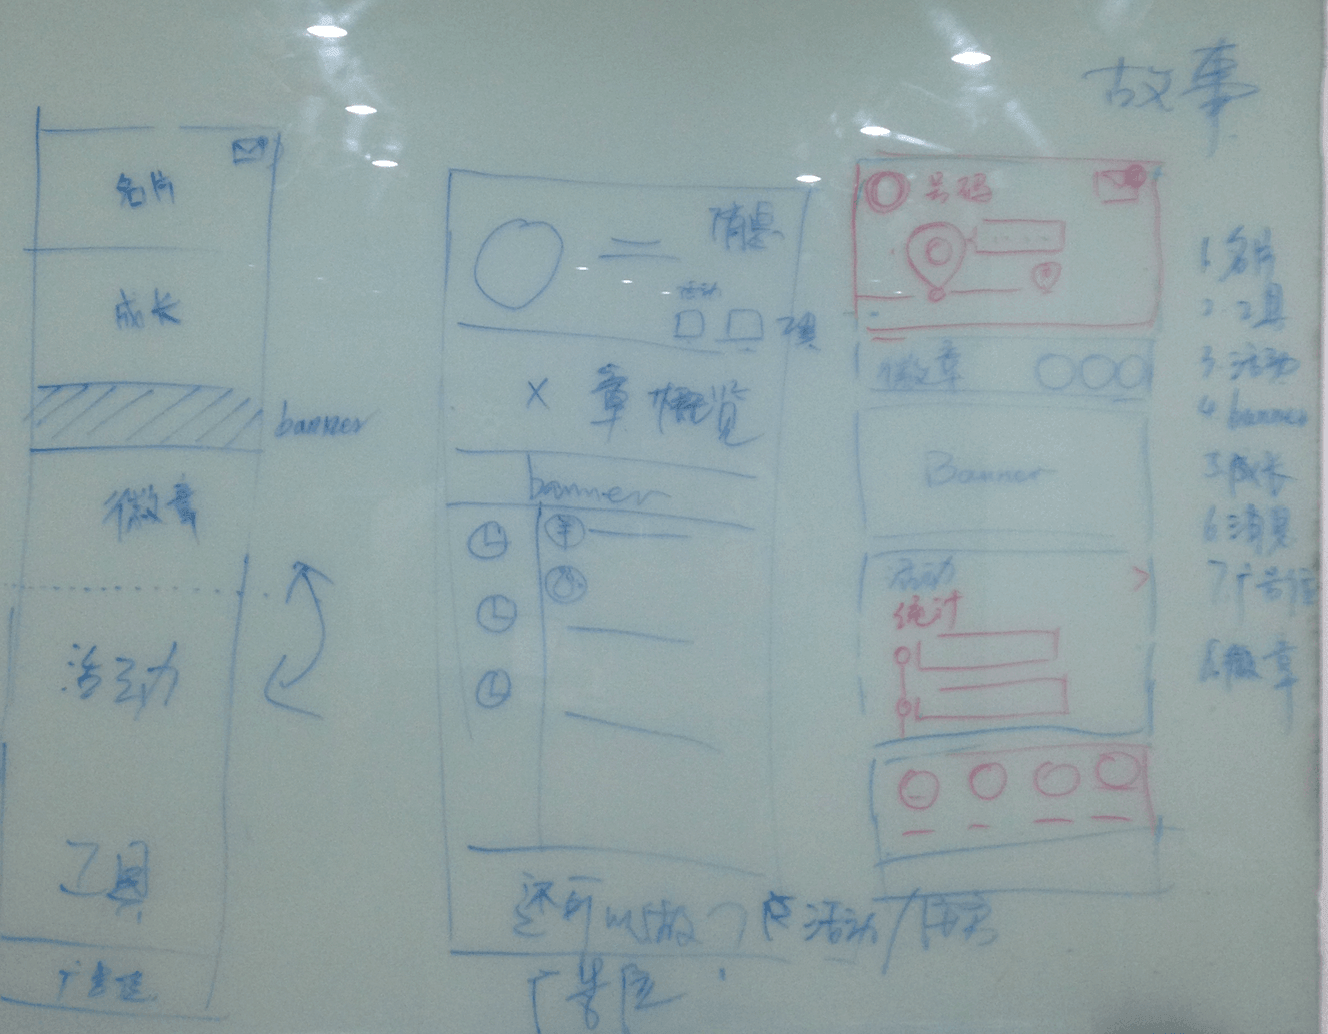 故事
名片
成长
banner
徽章
活动
工具
广告位
消息
活动
工具
X 章概览
banner
还可以做 活动/任务
广告位
号码
徽章
Banner
活动
统计
1. 名片
2. 工具
3. 活动
4. banner
5. 成长
6. 消息
7. 广告位
8. 徽章